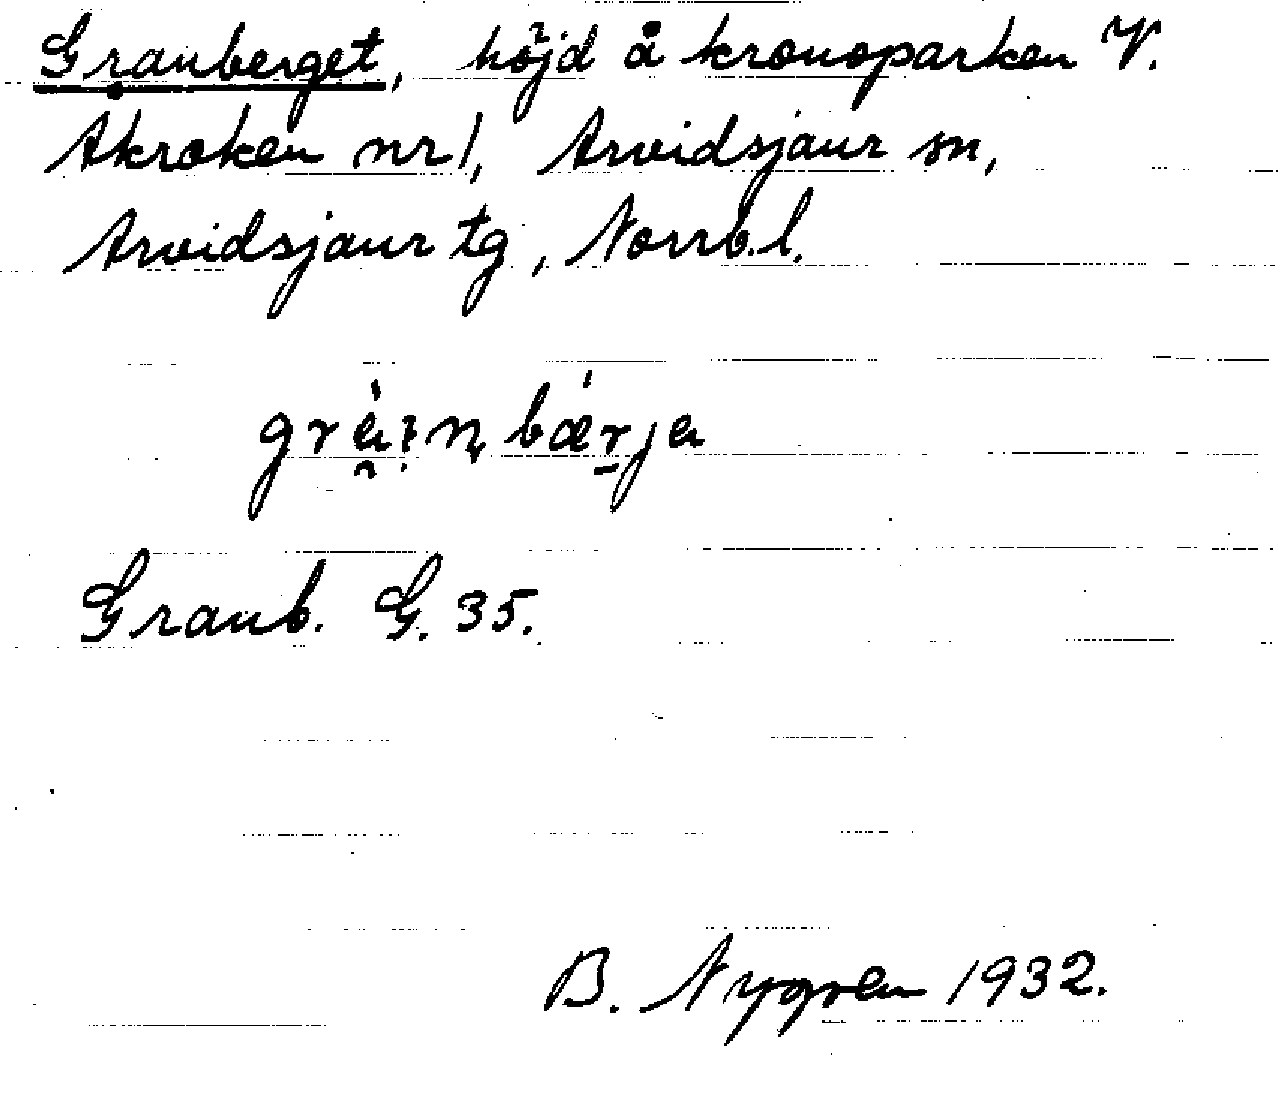 Granberget, höjd å kronoparken V.
Åkroken nr 1, Arvidsjaur sn,
Arvidsjaur tg, Norrb. l.
grà̰i̯ṇbǽr̠ja
Granb. G. 35.
B. Nygren 1932.